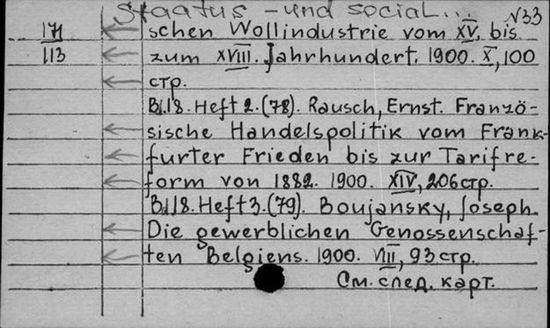 Staatus - und social... √33
171 schen Wollindustrie vom XV. bis
113 zum XVIII. Jahrhundert. 1900. X, 100
стр.
Bd.18. Heft 2. (78). Rausch, Ernst. Franzö-
sische Handelspolitik vom Frank-
furter Frieden bis zur Tarifre-
form von 1882. 1900. XIV, 206 стр.
Bd.18. Heft 3. (79). Boujansky, Joseph.
Die gewerblichen Genossenschaf-
ten Belgiens. 1900. VIII, 93 стр.
См. след. карт.